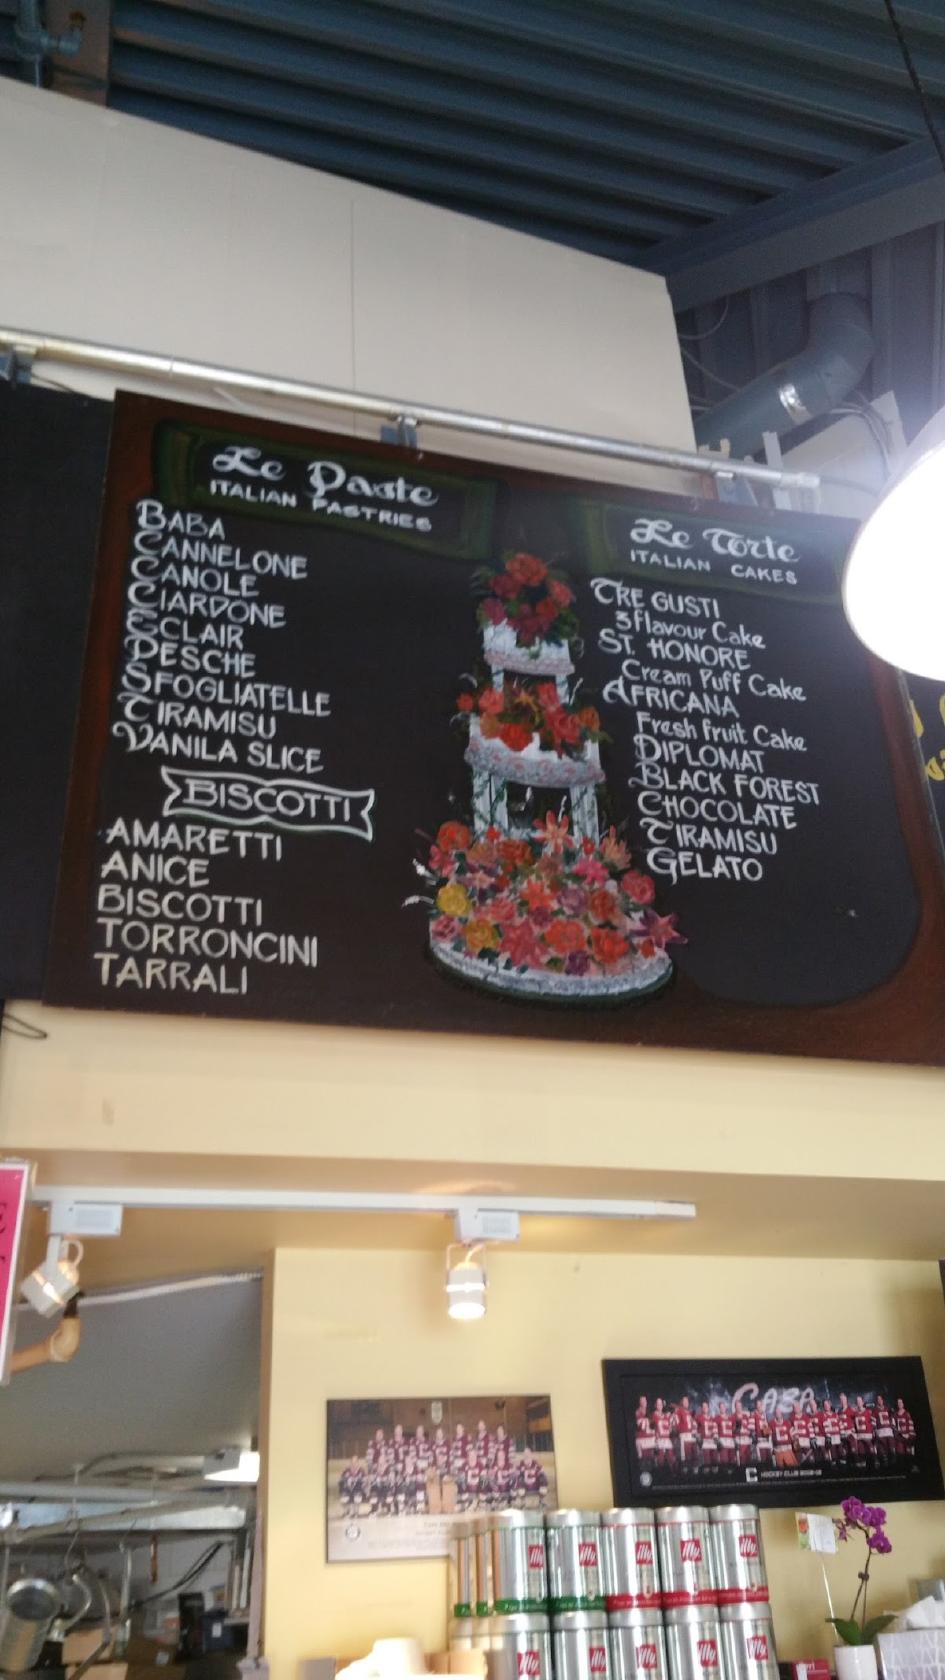 Le Paste
ITALIAN PASTRIES
BABA
CANNELONE
CANOLE
CIARDONE
ECLAIR
PESCHE
SFOGLIATELLE
TIRAMISU
VANILA SLICE
BISCOTTI
AMARETTI
ANICE
BISCOTTI
TORRONCINI
TARRALI
Le Torte
ITALIAN CAKES
TRE GUSTI
3 flavour Cake
ST. HONORE
Cream Puff Cake
AFRICANA
Fresh fruit Cake
DIPLOMAT
BLACK FOREST
CHOCOLATE
TIRAMISU
GELATO
CASA
C HOCKEY CLUB
illy
illy
illy
illy
illy
illy
illy
illy
illy
illy